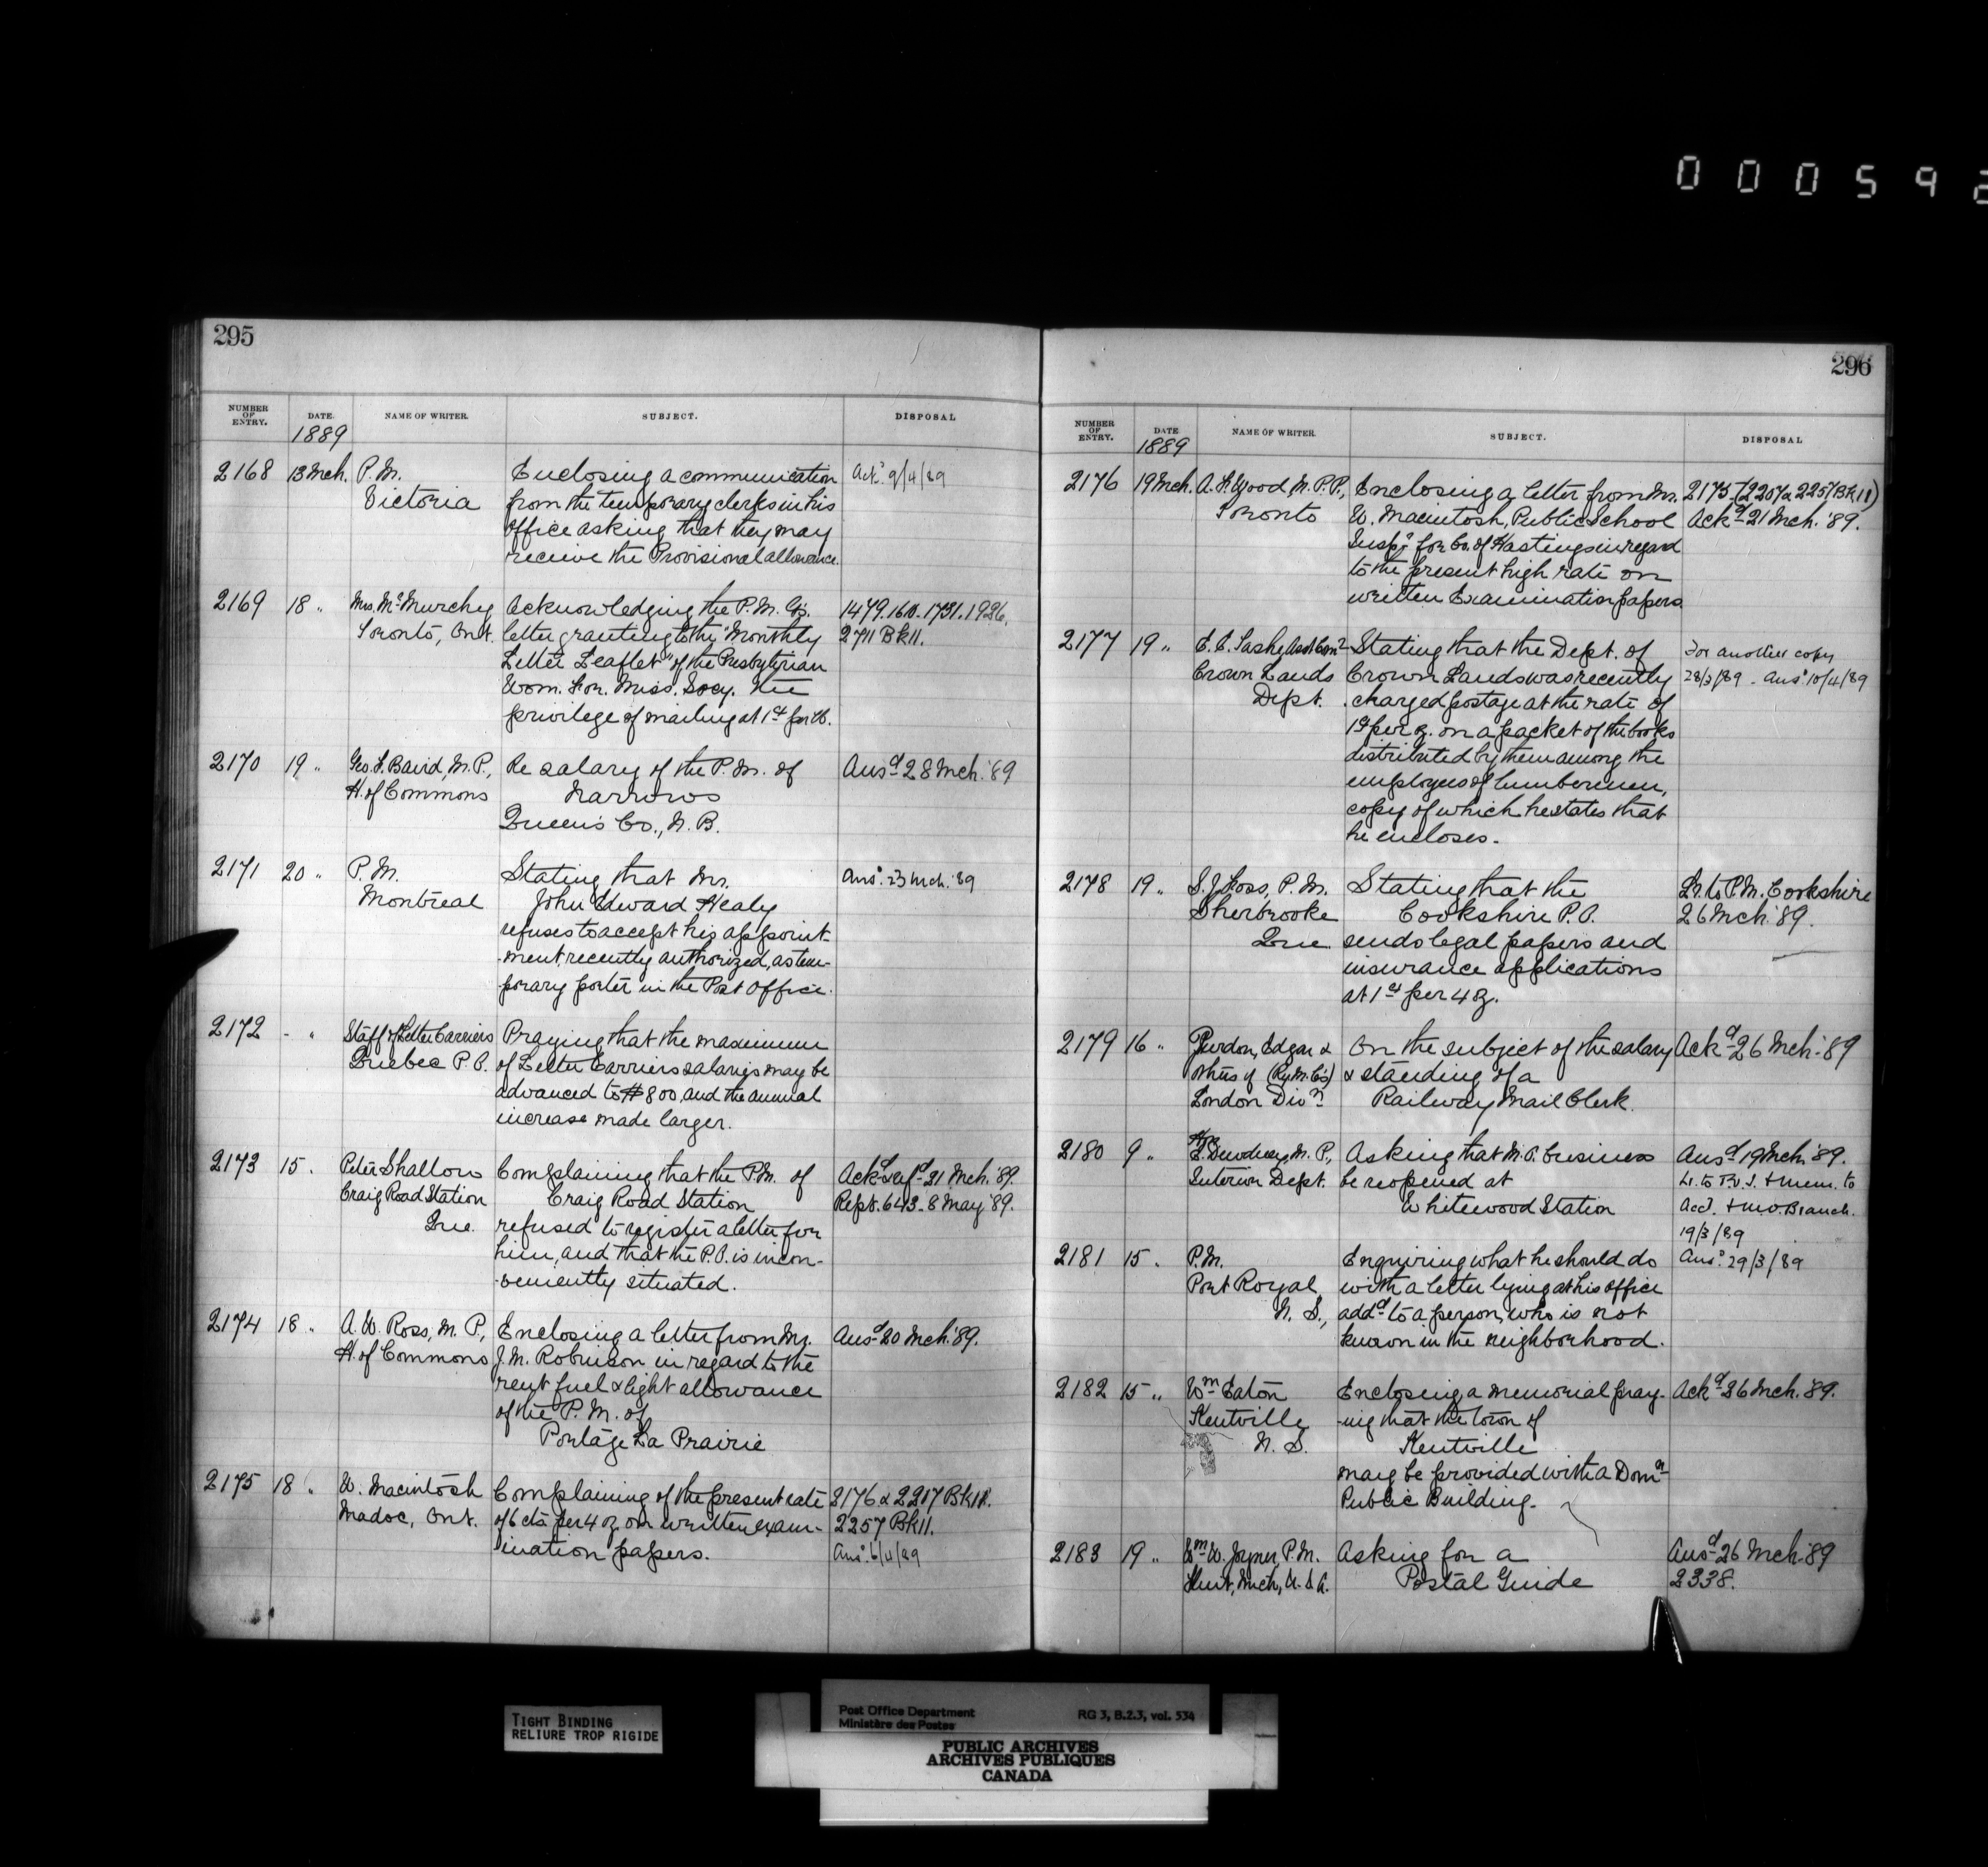 0 0 0 5 9 2
295
NUMBER OF ENTRY. DATE. NAME OF WRITER. SUBJECT. DISPOSAL
1889
2168 13 Mch. P.M. Enclosing a communication Ack.d 9/4/89
Victoria from the temporary clerks in his
office asking that they may
receive the Provisional allowance.
2169 18 " Mrs. McMurchy Acknowledging the P.M. G's. 1479. 1610. 1731. 1926,
Toronto, Ont. letter granting to the "Monthly 2711 Bk 11.
Letter Leaflet" of the Presbyterian
Wom. For. Miss. Socy. the
privilege of mailing at 1ct per lb.
2170 19 " Geo. F. Baird, M.P., Re salary of the P.M. of Ansd 28 Mch. '89
H. of Commons Narrows
Queen's Co., N.B.
2171 20 " P.M. Stating that Mr. Ansd. 23 Mch. '89
Montreal John Edward Healy
refuses to accept his appoint-
-ment, recently authorized, as tem-
porary porter in the Post Office.
2172 - " Staff of Letter Carriers Praying that the maximum
Quebec P.O. of Letter Carriers salaries may be
advanced to $800, and the annual
increase made larger.
2173 15 . Peter Shallow Complaining that the P.M. of 21 Mch. '89.
Craig Road Station Craig Road Station Rept. 643 - 8 May '89.
Que. refused to register a letter for
him, and that the P.O. is incon-
-veniently situated.
2174 18 " A. W. Ross, M.P., Enclosing a letter from Mr. Ansd 20 Mch. '89.
H. of Commons J. M. Robinson in regard to the
rent fuel & light allowance
of the P.M. of
Portage La Prairie
2175 18 " W. Macintosh Complaining of the present rate 2176 & 2217 Bk 11.
Madoc, Ont. of 6 cts per 4 oz. on written exam- 2257 Bk 11.
ination papers. Ansd. 6/4/89
296
NUMBER OF ENTRY. DATE NAME OF WRITER. SUBJECT. DISPOSAL
1889
2176 19 Mch. A. F. Wood, M.P.P., Enclosing a letter from Mr. 2175. (2207 & 2257 Bk 11)
Toronto W. Macintosh, Public School Ackd 21 Mch. '89.
Inspr. for Co. of Hastings in regard
to the present high rate on
written Examination papers.
2177 19 " Asst Comr Stating that the Dept. of For another copy
Crown Lands Crown Lands was recently 28/3/89 - Ansd. 10/4/89
Dept. charged postage at the rate of
1ct per oz. on a packet of the books
distributed by them among the
employees of lumbermen,
copy of which he states that
he encloses.
2178 19 " S. J. Foss, P.M. Stating that the Lr. to P.M. Cookshire
Sherbrooke Cookshire P.O. 26 Mch. '89.
Que sends legal papers and
insurance applications
at 1ct per 4 oz.
2179 16 " Purdon, Edgar & On the subject of the salary Ackd 26 Mch. '89
others of (Ry. M. C's) & standing of a
London Divn. Railway Mail Clerk.
2180 9 " E. Dewdney, M.P., Asking that M.O. business Ansd 19 Mch. '89.
Interior Dept. be reopened at Lr. to P.O.I. & Mem. to
Whitewood Station Acct. & M.O. Branch.
19/3/89
2181 15 . P.M. Enquiring what he should do Ansd. 29/3/89
Port Royal with a letter lying at his office
N.S., addd to a person, who is not
known in the neighborhood.
2182 15 " Wm Eaton Enclosing a memorial pray- Ackd 26 Mch. '89.
Kentville -ing that the town of
N.S. Kentville
may be provided with a Domn
Public Building.
2183 19 " Wm W. Joyner, P.M. Asking for a Ansd 26 Mch. '89
Flint, Mich., U.S.A. Postal Guide 2338.
TIGHT BINDING
RELIURE TROP RIGIDE
Post Office Department RG 3, B.2.3, vol. 534
Ministère des Postes
PUBLIC ARCHIVES
ARCHIVES PUBLIQUES
CANADA